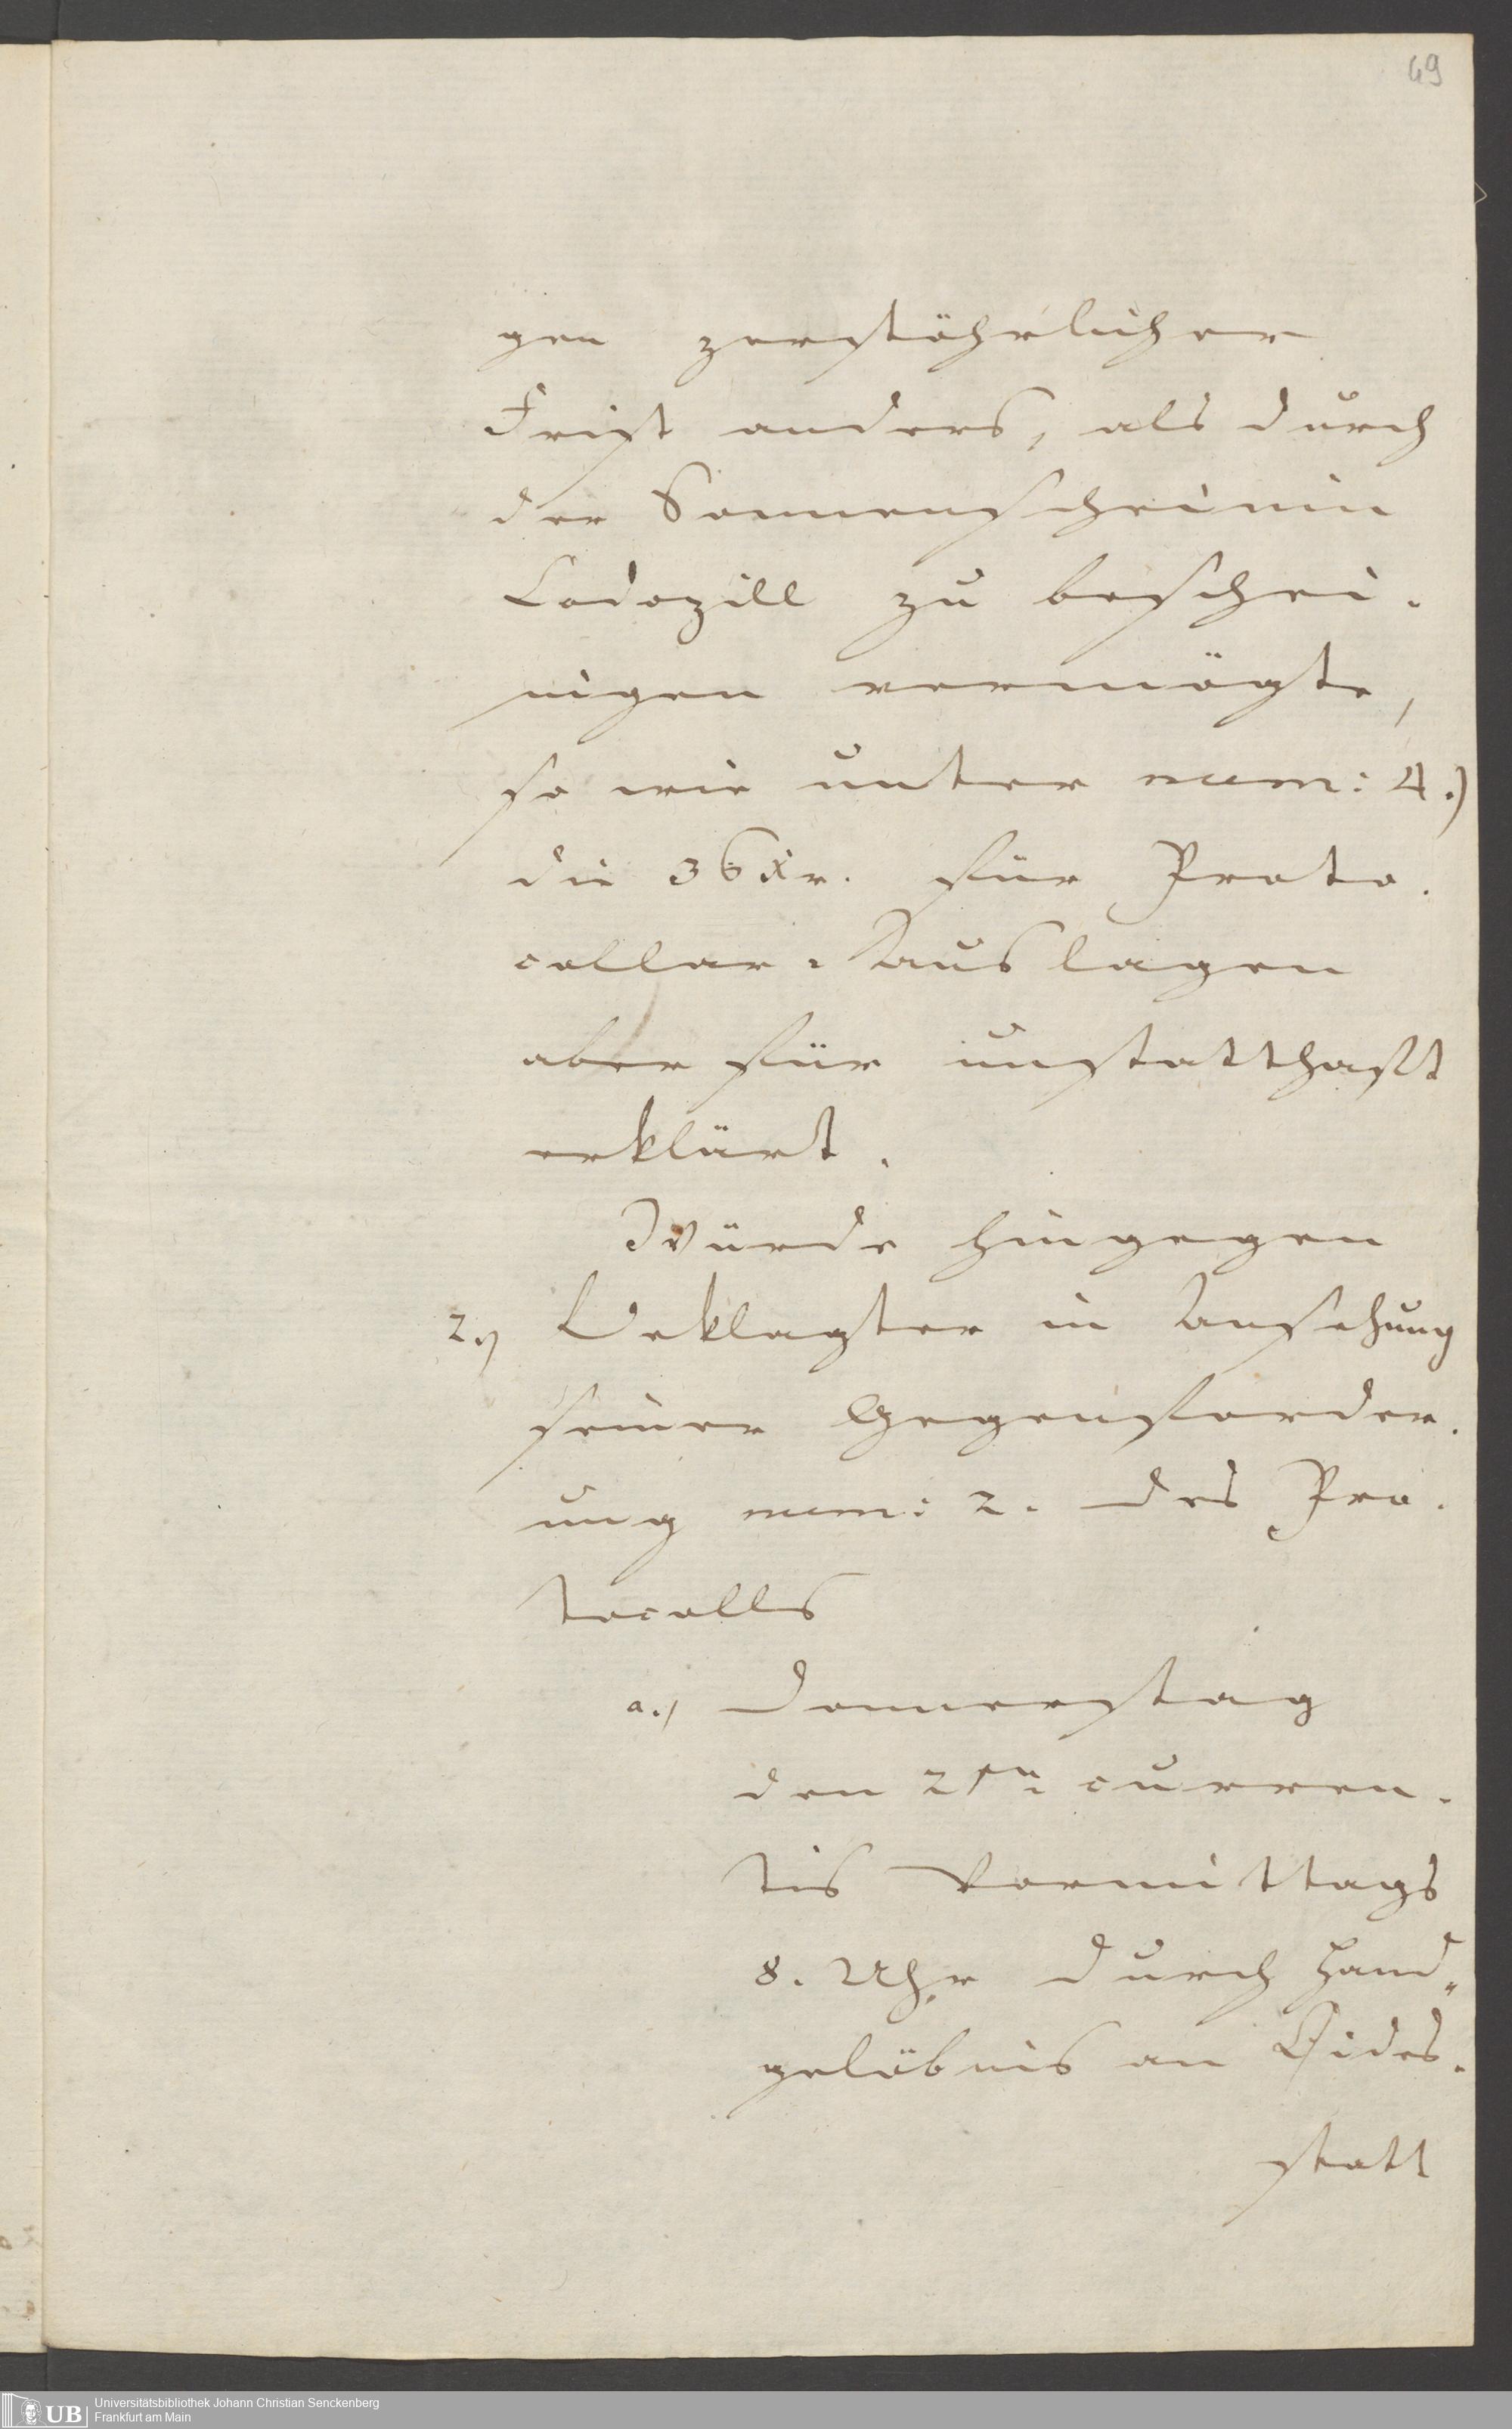 49
gen zerstöhrlicher
Frist anders, als durch
der Sonnenscheinin
Codozill zu beschei-
nigen vermögte,
so wie unter num: 4.)
die 36 Xr. für Proto-
collar-Auslagen
aber für unstatthaft
erklärt.
Würde hingegen
2.) Beklagter in Ansehung
seiner Gegenforder-
ung num: 2. des Pro-
tocolls
a.) Donnerstag
den 21ten curren-
tis Vormittags
8. Uhr durch Hand-
gelöbnis an Eides-
statt
UB Universitätsbibliothek Johann Christian Senckenberg
Frankfurt am Main